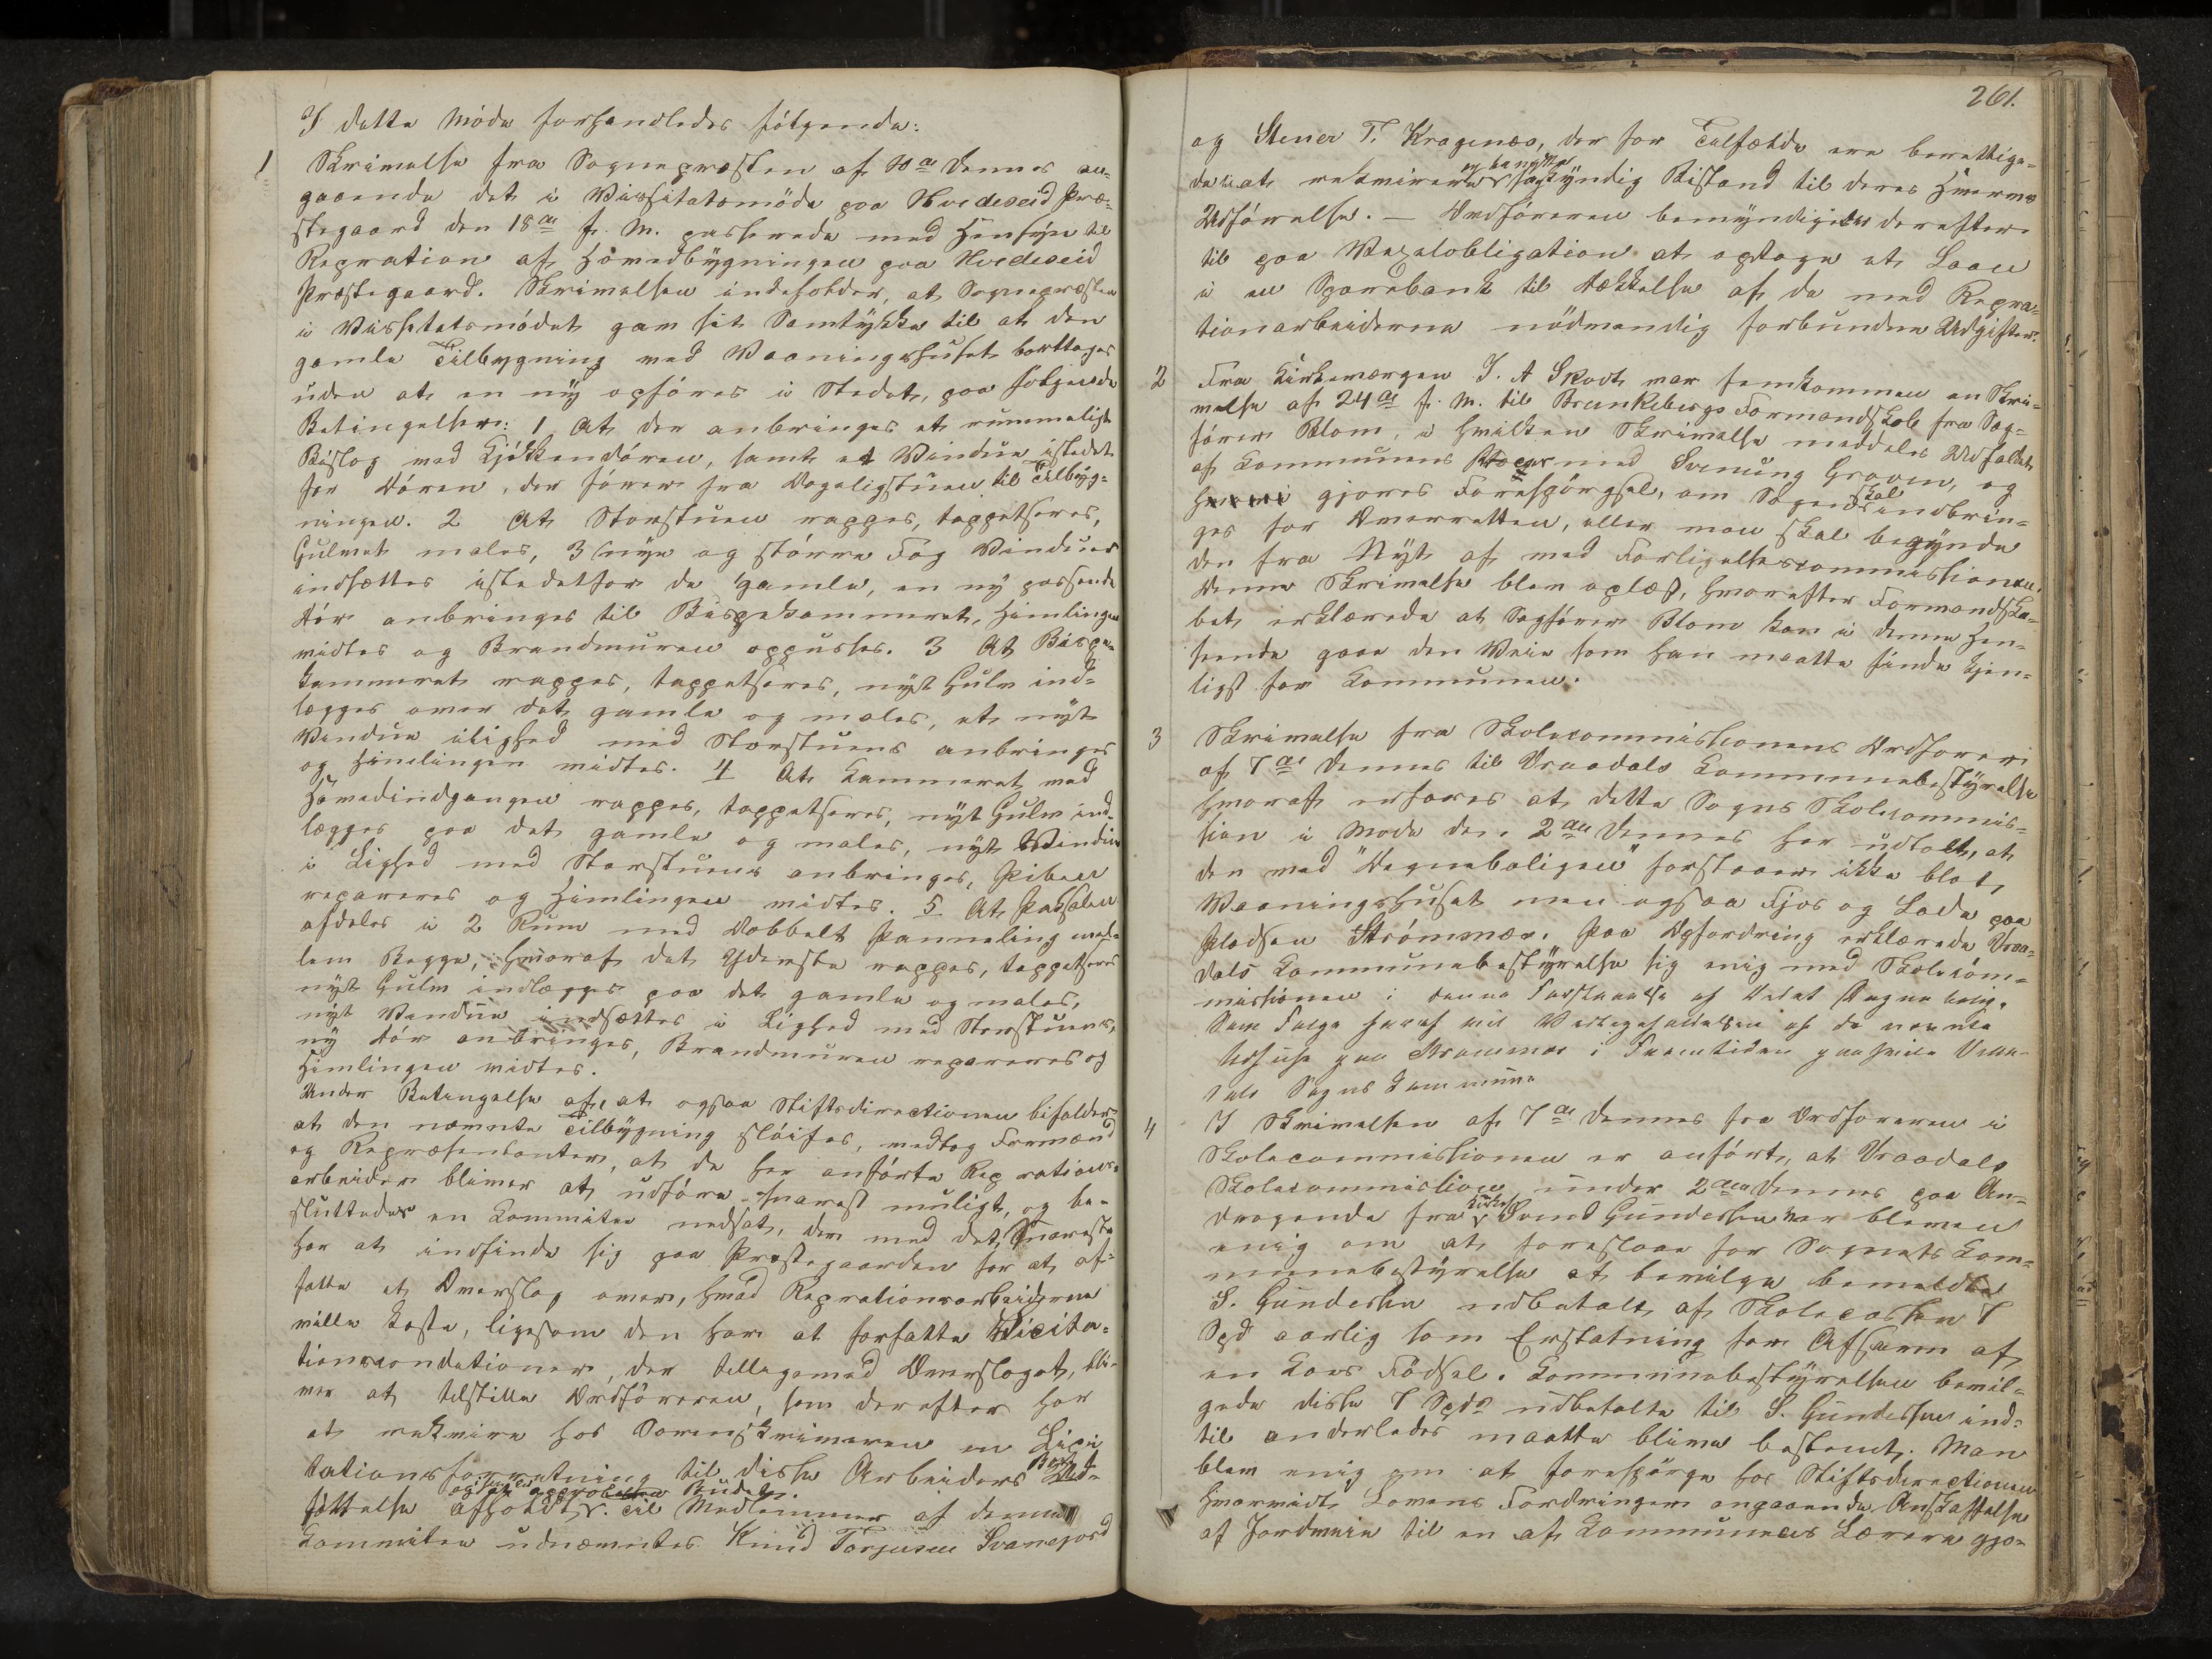 I dette Møde forhandledes følgende:
1 Skrivelse fra Sognepræsten af 10de dennes an-
gaaende det i Vissitatsmøde paa Hvideseid Præ-
stegaard den 18de f. M. passerede med Hensyn til
Repration af Hovedbygningen paa Hvideseid
Præstegaard. Skrivelsen indeholder, at Sognepræsten
i Vissitatsmødet gav sit Samtykke til at den
gamle Tilbygning ved Vaaningshuset borttages
uden at en ny opføres i Stedet, paa følgende
Betingelser: 1 At der anbringes et rummeligt
Bislag med Kjøkkendøren, samt et Vindue istedet
for Døren, der fører fra Dagligstuen til Tilbyg-
ningen. 2 At Storstuen rappes, tappetseres,
Gulvet males, 3 nye og større Fag Vinduer
indsættes istedetfor de gamle, en ny passende
Dør anbringes til Bispekammeret, Himlingen
vidtes og Brandmuren oppusses. 3 At Bispe-
kammeret rappes, tappetseres, nyt Gulv ind-
lægges over det gamle og males, et nyt
Vindue ilighed med Storstuens anbringes
og Himlingen vidtes. 4 At Kammeret ved
Hovedindgangen rappes, tappetseres, nyt Gulv ind-
lægges paa det gamle og males, nyt Vindue
i Lighed med Storstuens anbringes, Piben
repareres og Himlingen vidtes. 5 At Pulsalen
afdeles i 2 Rum med Dobbelt Panneling mel-
lem Begge, hvoraf det Yderste rappes, tappetseres
nyt Gulv indlægges paa det gamle og males,
nyt Vindue indsættes i Lighed med Storstuens,
ny Dør anbringes, Brandmuren repareres og
Himlingen vidtes.
Under Betingelse af, at ogsaa Stiftsdirectionen bifalder
at den nævnte Tilbygning sløifes, vedtog Formænd
og Repræsentanter, at de her anførte Reprations-
arbeider bliver at udføre snarest muligt, og be-
sluttedes en Kommitee nedsat, der med det Snareste
har at indfinde sig paa Præstegaarden for at af-
fatte et Overslag over, hvad Reprationsarbeiderne
ville koste, ligesom den har at forfatte Licita-
tionscondationer, der tilligemed Overslaget, bli-
ver at tilstille Ordføreren, som derefter har
at rekvirere hos Sorenskriveren en Lici
tationsforretning til disse Arbeiders Bort-
sættelse afholdt. Til Medlemmer af denne
Kommitee udnævntes Knud Torjusen Svanejord
261.
og Stener T. Kragenæs, der for Tilfælde ere berettige-
de til at rekvirere sagkyndig Bistand til deres Hvervs
Udførelse. — Ordføreren bemyndigedes derefter
til paa Vexelobligation at optage et Laan
i en Sparebank til Dækkelse af de med Repra-
tionarbeiderne nødvendig forbundne Udgifter.
2 Fra Kirkeværgen J. A Skoth var fremkommen en Skri-
velse af 24de f. M. til Brunkebergs Formandskab fra Sag-
fører Blom, i hvilken Skrivelse meddeles Udfaldet
af Kommunens Proces med Svenung Graven, og
gjøres Forespørgsel, om Sagen skal indbrin-
ges for Overretten, eller man skal begynde
den fra Nyt af med Forligelsescommissionen.
Denne Skrivelse blev oplæst, hvorefter Formandska-
bet erklærede at Sagfører Blom kan i denne Hen-
seende gaae den Veie som han maatte finde tjen-
ligst for Kommunen.
3 Skrivelse fra Skolecommissionens Ordfører
af 7de dennes til Vraadals Kommunebestyrelse
hvoraf erfares at dette Sogns Skolecommis-
sion i Møde den 2den dennes har udtalt, at
den med "Degneboligen" forstaaer ikke blot
Vaaningshuset men ogsaa Fjøs og Lade paa
Pladsen Strømmen. Paa Opfordring erklærede Vraa-
dals Kommunebestyrelse sig enig med Skolecom-
missionen i denne Forstaaelse af Ordet Degnebolig.
Som Følge heraf vil Vedligeholdelsen af de nævnte
Udhuse paa Strømmen i Fremtiden paahvile Vraa-
dals Sogns Kommune
4 I Skrivelsen af 7de dennes fra Ordføreren i
Skolecommissionen er anført, at Vraadals
Skolecommission under 2den dennes paa An-
dragende fra Svend Gundersen var bleven
enig om at foreslaae for Sognets Kom-
munebestyrelse at bevilge bemeldte
S. Gundersen udbetalt af Skolecassen 7
Spd aarlig som Erstatning for Afsavn af
en Koes Fødsel. Kommunebestyrelsen bevil-
gede disse 7 Spd udbetalte til S. Gundersen ind-
til anderledes maatte blive bestemt. Man
blev enig om at forespørge hos Stiftsdirectionen
hvorvidt Lovens Fordringer angaaende Anskaffelse
af Jordveie til en af Kommunens Lærere gjø-